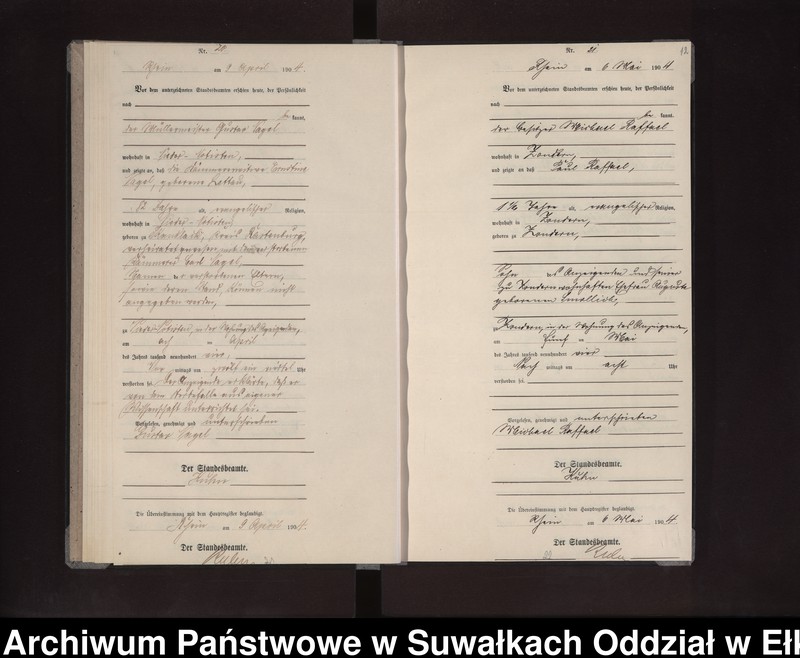 Nr. 20.
Rhein am 9 April 1904.
Vor dem unterzeichneten Standesbeamten erschien heute, der Persönlichkeit
nach
be kannt,
der Müllermeister Gustav
wohnhaft in
und zeigte an, daß die
geborene
52 Jahre alt, evangelischer Religion,
wohnhaft in
geboren zu Kreis Rastenburg,
verheiratet gewesen mit
Namen der verstorbenen Eltern,
sowie deren Stand, können nicht
angegeben werden,
zu in der Wohnung des Anzeigenden,
am acht ten April
des Jahres tausend neunhundert vier,
Vor mittags um Uhr
verstorben sei. Der Anzeigende erklärte, daß er
von dem Sterbefalle aus eigener
Wissenschaft unterrichtet sei.
Vorgelesen, genehmigt und unterschrieben
Gustav
Der Standesbeamte.
Kuhn
Die Übereinstimmung mit dem Hauptregister beglaubigt.
Rhein am 9 April 1904.
Der Standesbeamte.
Kuhn
Nr. 21.
12.
Rhein am 6 Mai 1904
Vor dem unterzeichneten Standesbeamten erschien heute, der Persönlichkeit
nach
be kannt,
der Besitzer Michael Raffael
wohnhaft in Zondern,
und zeigte an, daß Paul Raffael,
Jahre alt, evangelischer Religion,
wohnhaft in Zondern,
geboren zu Zondern,
Sohn des Anzeigenden und seiner
zu Zondern wohnhaften Ehefrau Auguste
geborenen
zu Zondern, in der Wohnung des Anzeigenden,
am fünf ten Mai
des Jahres tausend neunhundert vier
Nach mittags um acht Uhr
verstorben sei.
Vorgelesen, genehmigt und unterschrieben
Michael Raffael
Der Standesbeamte.
Kuhn
Die Übereinstimmung mit dem Hauptregister beglaubigt.
Rhein am 6 Mai 1904.
Der Standesbeamte.
Kuhn
Archiwum Państwowe w Suwałkach Oddział w Ełk